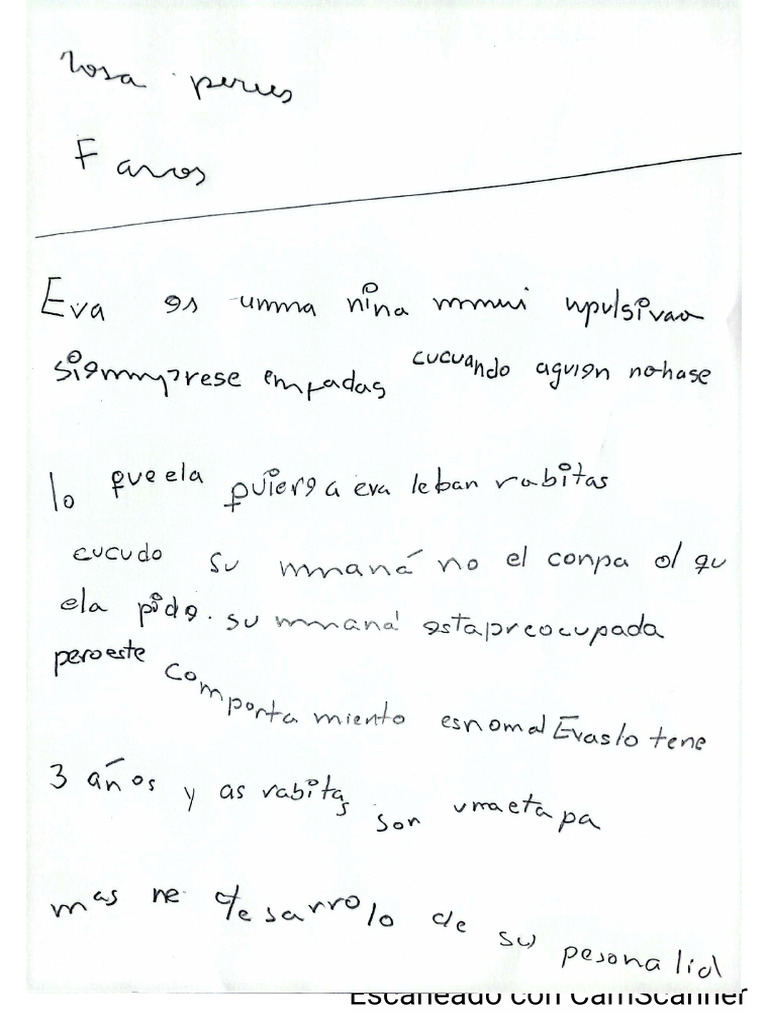 rosa perres
Faros
Eva es umma nina mmui npulsivaa
siemmprese empadas cucuando aguien nohase
lo queela quiere a eva leban rabitas
cucudo su mmaná no el conpa ol qu
ela pide. su mmaná estapreocupada
peroeste comporta miento esnomal Evaslo tene
3 años y as rabitas son umaeta pa
mas ne desarrolo de su pesona lid
Escaneado con CamScanner